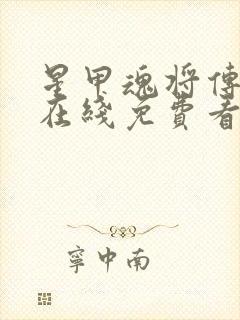 星甲魂将傳
在綫免費看
寧中南